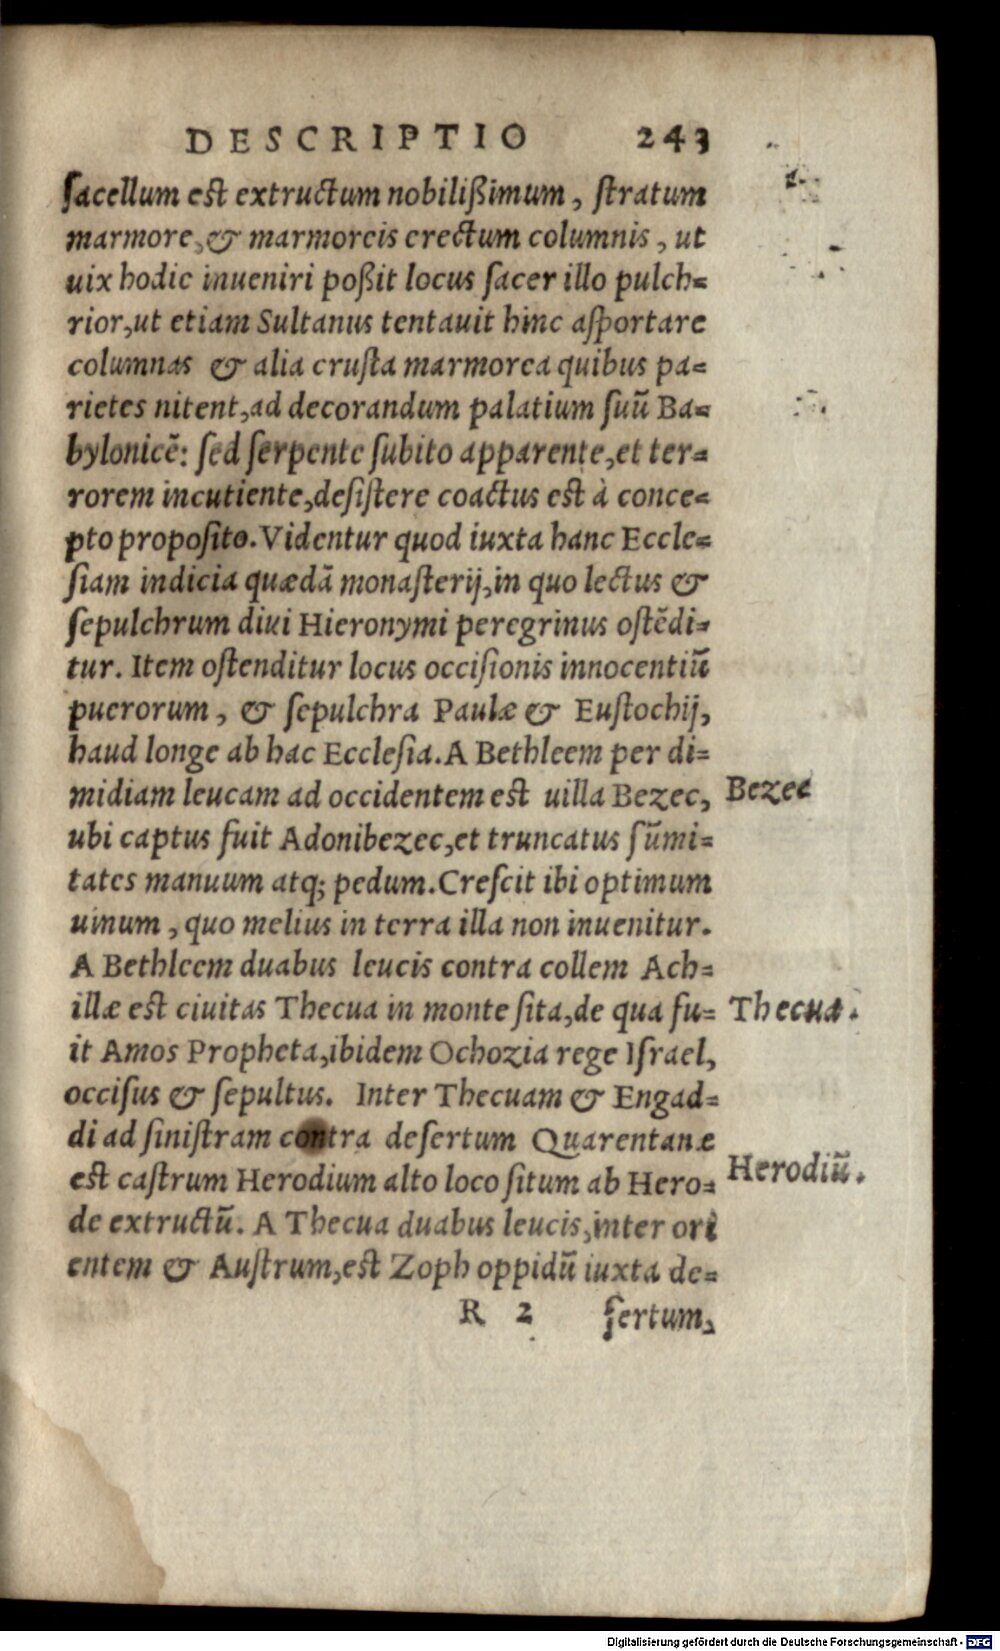 DESCRIPTIO 243
ſacellum eſt extructum nobilißimum, ſtratum
marmore, & marmoreis erectum columnis, ut
uix hodie inueniri poßit locus ſacer illo pulch=
rior, ut etiam Sultanus tentauit hinc aſportare
columnas & alia cruſta marmorea quibus pa=
rietes nitent, ad decorandum palatium ſuũ Ba=
bylonicẽ: ſed ſerpente ſubito apparente, et ter=
rorem incutiente, deſiſtere coactus eſt à conce=
pto propoſito. Videntur quod iuxta hanc Eccle=
ſiam indicia quædã monaſterij, in quo lectus &
ſepulchrum diui Hieronymi peregrinus oſtẽdi=
tur. Item oſtenditur locus occiſionis innocentiũ
puerorum, & ſepulchra Paulæ & Euſtochij,
haud longe ab hac Eccleſia. A Bethleem per di=
midiam leucam ad occidentem eſt uilla Bezec, Bezec
ubi captus fuit Adonibezec, et truncatus ſũmi=
tates manuum atq; pedum. Creſcit ibi optimum
uinum, quo melius in terra illa non inuenitur.
A Bethleem duabus leucis contra collem Ach=
illæ eſt ciuitas Thecua in monte ſita, de qua fu= Thecua.
it Amos Propheta, ibidem Ochozia rege Iſrael,
occiſus & ſepultus. Inter Thecuam & Engad=
di ad ſiniſtram contra deſertum Quarentanæ
eſt caſtrum Herodium alto loco ſitum ab Hero= Herodiũ.
de extructũ. A Thecua duabus leucis, inter ori
entem & Auſtrum, eſt Zoph oppidũ iuxta de=
R 2 ſertum,
Digitalisierung gefördert durch die Deutsche Forschungsgemeinschaft - DFG